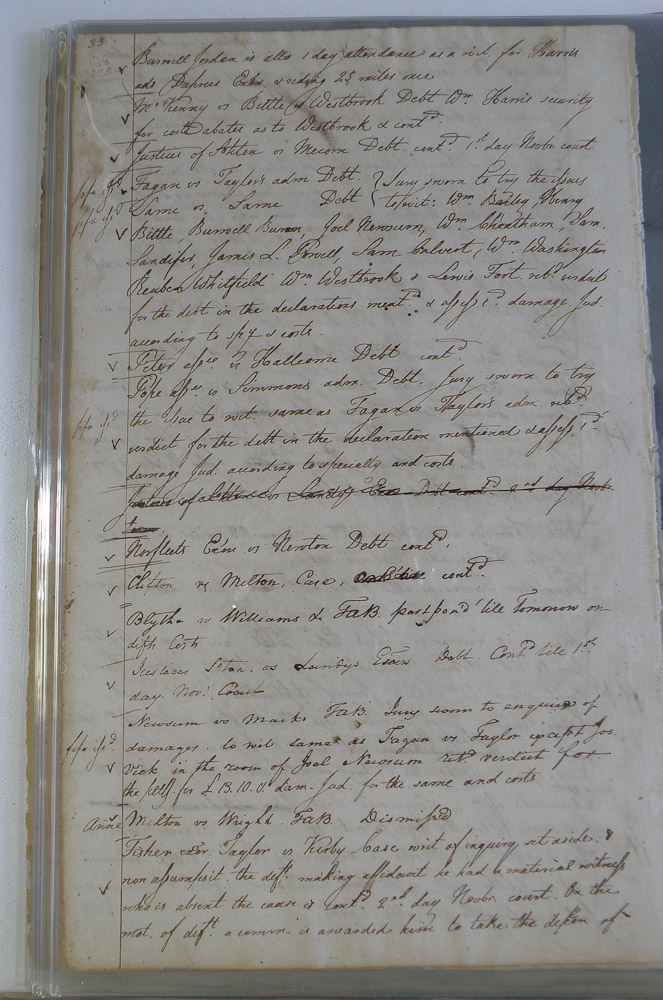 33.
Burwell Jordan is allo 1 day attendance as a wit. for Harris
ads Exr & riding 25 miles once
McKenny vs Bittle & Westbrook Debt Wm. Harris security
for costs abates as to Westbrook & contd.
Justices of vs Debt contd. 1st day Novbr court
Fagan vs Taylor's adm Debt. } Jury sworn to try the issues
Same vs Same Debt } to wit: Wm Bailey, Henry
Bittle, Burwell Joel Newsum, Wm. Cheatham, Sam.
Sandifer, James L. Powell, Sam Calvert, Wm Washington
Reuben Whitfield Wm. Westbrook & Lewis Fort retd. verdict
for the debt in the declarations mentd. & assess 1d. damage. Jud.
according to spy & costs.
Peter assee vs Hallcome Debt contd.
Pope assee vs Simmons adm. Debt. Jury sworn to try
the issue to wit. same as Fagan vs Taylor's adm. retd.
verdict for the debt in the declaration mentioned & assess 1d.
damage Jud. according to specialty and costs.
Justices of vs Exor Debt contd 2nd day Novbr
term
Norfleets Exors vs Newton Debt contd.
Clifton vs Melton, Case, contd.
Blythe vs Williams & FaB. postpond' till Tomorrow on
difts Costs
vs Exors Debt. Contd till 1st
day Nov: Court
Newsum vs Marks FaB. Jury sworn to enquire of
damages. to wit same as Fagan vs Taylor except Jos.
Vick in the room of Joel Newsum retd verdict for
the plff. for £13.10.0 dam. Jud. for the same and costs
Melton vs Wright. FaB. Dismissd
Fisher exor Taylor vs Kirby Case writ of inquiry set aside. &
non assumpsit the deft. making affidavit he had a material witness
who is absent the cause is contd. 2nd day Novbr court. On the
mot. of deft. a comm. is awarded him to take the depon of